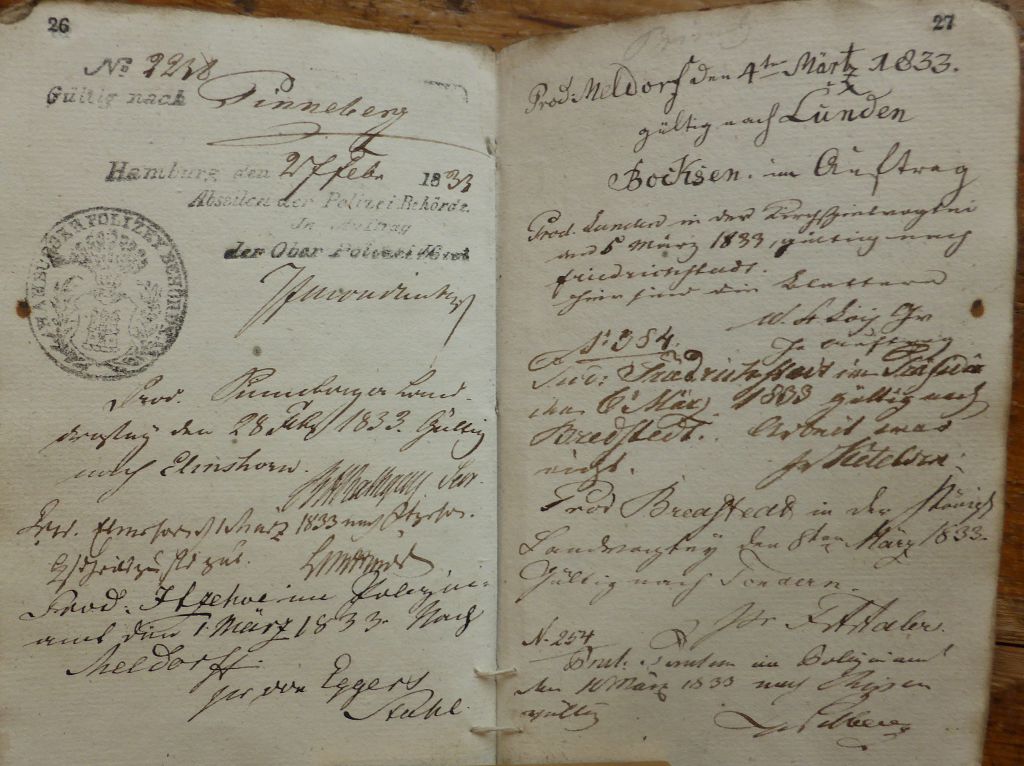 26
No 2238
Gültig nach Pinneberg
Hamburg den 27 Feb. 1833
Abseiten der Polizei Behörde.
In Auftrag
der Ober Polizei
HAMBURGER POLIZEY BEHÖRDE
Prod. Pinneberger Land-
drostey den 28 Feb 1833. Gültig
nach Elmshorn.
Prod. Elmshorn 1 März 1833 nach
Prod: Itzehoe im Polizei-
amt den 1 März 1833. Nach
Meldorff.
pr von Eggers
27
Prod: Meldorf den 4ten Märtz 1833.
gültig nach Lunden
Bocksen. im Auftrag
Prod. Lunden in der Kirchspielvogtei
den 5 März 1833, gültig nach
Friedrichstadt.
Hierin sind die Blattern
In Auftrag
No 384.
Friedrichstadt im
den 6t März 1833 gültig nach
Bredstedt. Arbeit war
nicht.
Prod Bredstedt in der Königl
Landvogtey den 8ten März 1833.
Gültig nach Tondern.
N. 254
im Polizeiamt
den 10 März 1833 nach
gültig